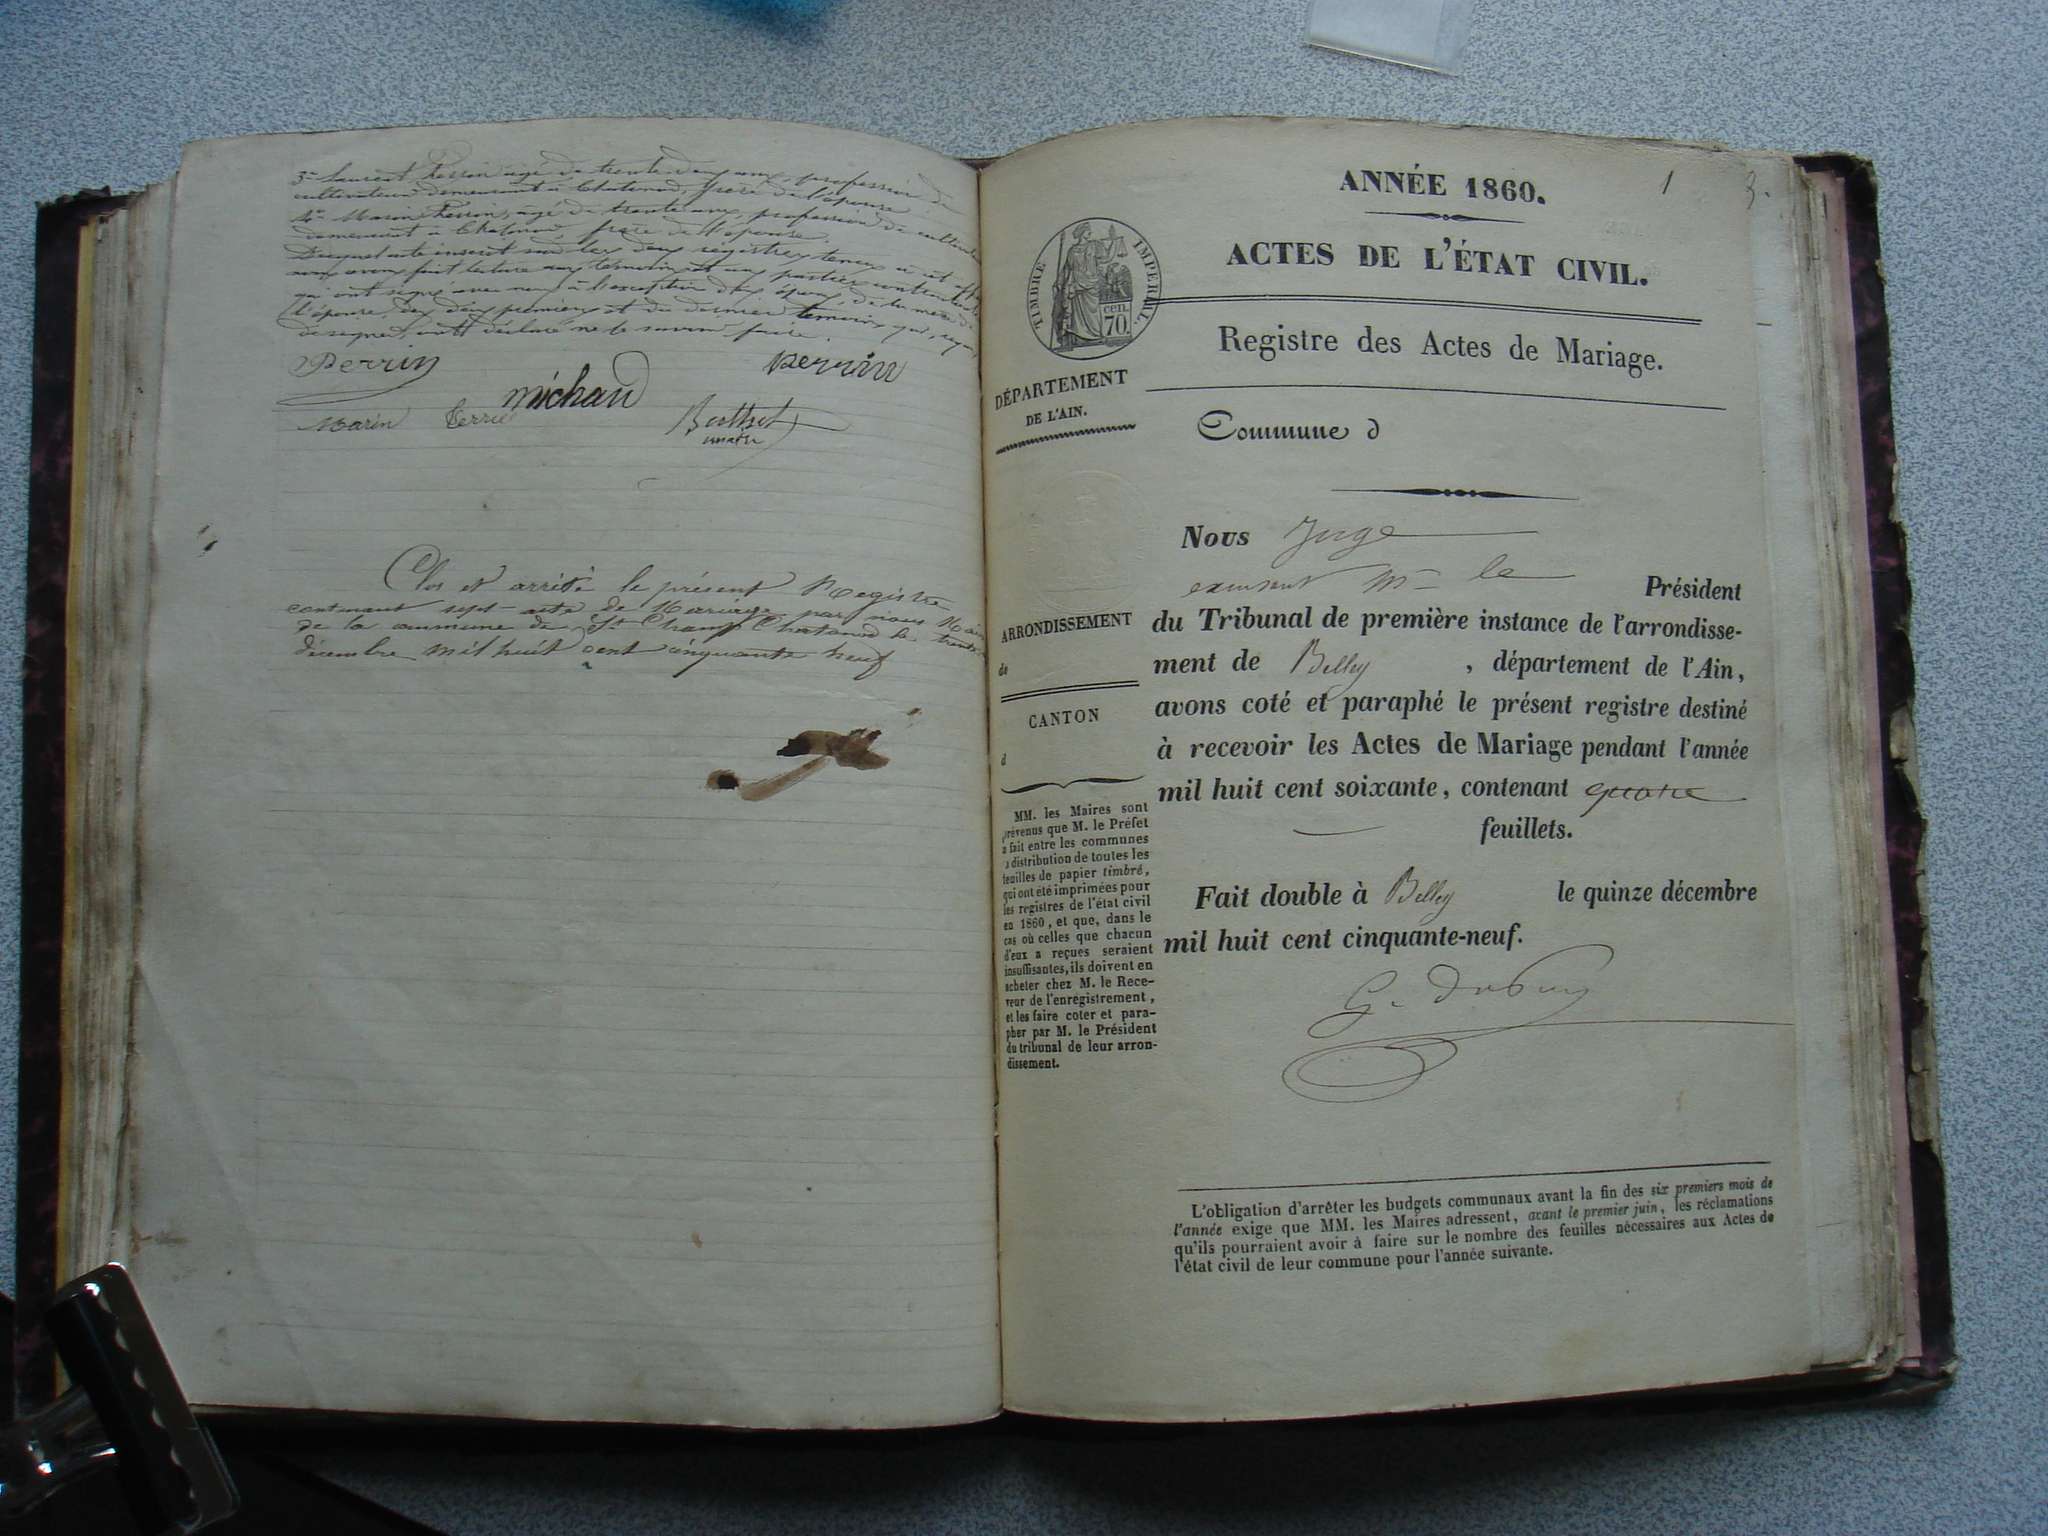 3° Laurent Perrin âgé de trente deux ans, profession de
cultivateur demeurant à Chatonod, frère de l'épouse
4° Marin Perrin, âgé de trente ans, profession de cultivateur
demeurant à Chatonod, frère de l'épouse.
Lequel acte inscrit sur les deux régistres tenus à cet effet
nous avons fait lecture aux témoins et aux parties contractantes
qui ont signé avec nous à l'exception de l'époux, de la mère de
l'épouse, des deux premiers et du dernier témoins qui, requis
de signer, ont déclaré ne le savoir faire.
Perrin
Perrin
michaud
Marin Perrin
Berthet
maire
Clos et arrêté le présent Registre
contenant sept acte de Mariage par nous Maire
de la commune de St Champ Chatonod le trente
décembre mil huit cent cinquante neuf
1
3.
ANNÉE 1860.
ACTES DE L'ÉTAT CIVIL.
TIMBRE IMPERIAL.
cen. 70
Registre des Actes de Mariage.
DÉPARTEMENT
DE L'AIN.
Commune d
Nous Juge
exerçant Mr le Président
du Tribunal de première instance de l'arrondisse-
ment de Belley , département de l'Ain,
avons coté et paraphé le présent registre destiné
à recevoir les Actes de Mariage pendant l'année
mil huit cent soixante, contenant quatre
feuillets.
Fait double à Belley le quinze décembre
mil huit cent cinquante-neuf.
ARRONDISSEMENT
de
CANTON
d
MM. les Maires sont
prévenus que M. le Préfet
a fait entre les communes
la distribution de toutes les
feuilles de papier timbré,
qui ont été imprimées pour
les registres de l'état civil
en 1860, et que, dans le
cas où celles que chacun
d'eux a reçues seraient
insuffisantes, ils doivent en
acheter chez M. le Rece-
veur de l'enregistrement,
et les faire coter et para-
pher par M. le Président
du tribunal de leur arron-
dissement.
L'obligation d'arrêter les budgets communaux avant la fin des six premiers mois de
l'année exige que MM. les Maires adressent, avant le premier juin, les réclamations
qu'ils pourraient avoir à faire sur le nombre des feuilles nécessaires aux Actes de
l'état civil de leur commune pour l'année suivante.